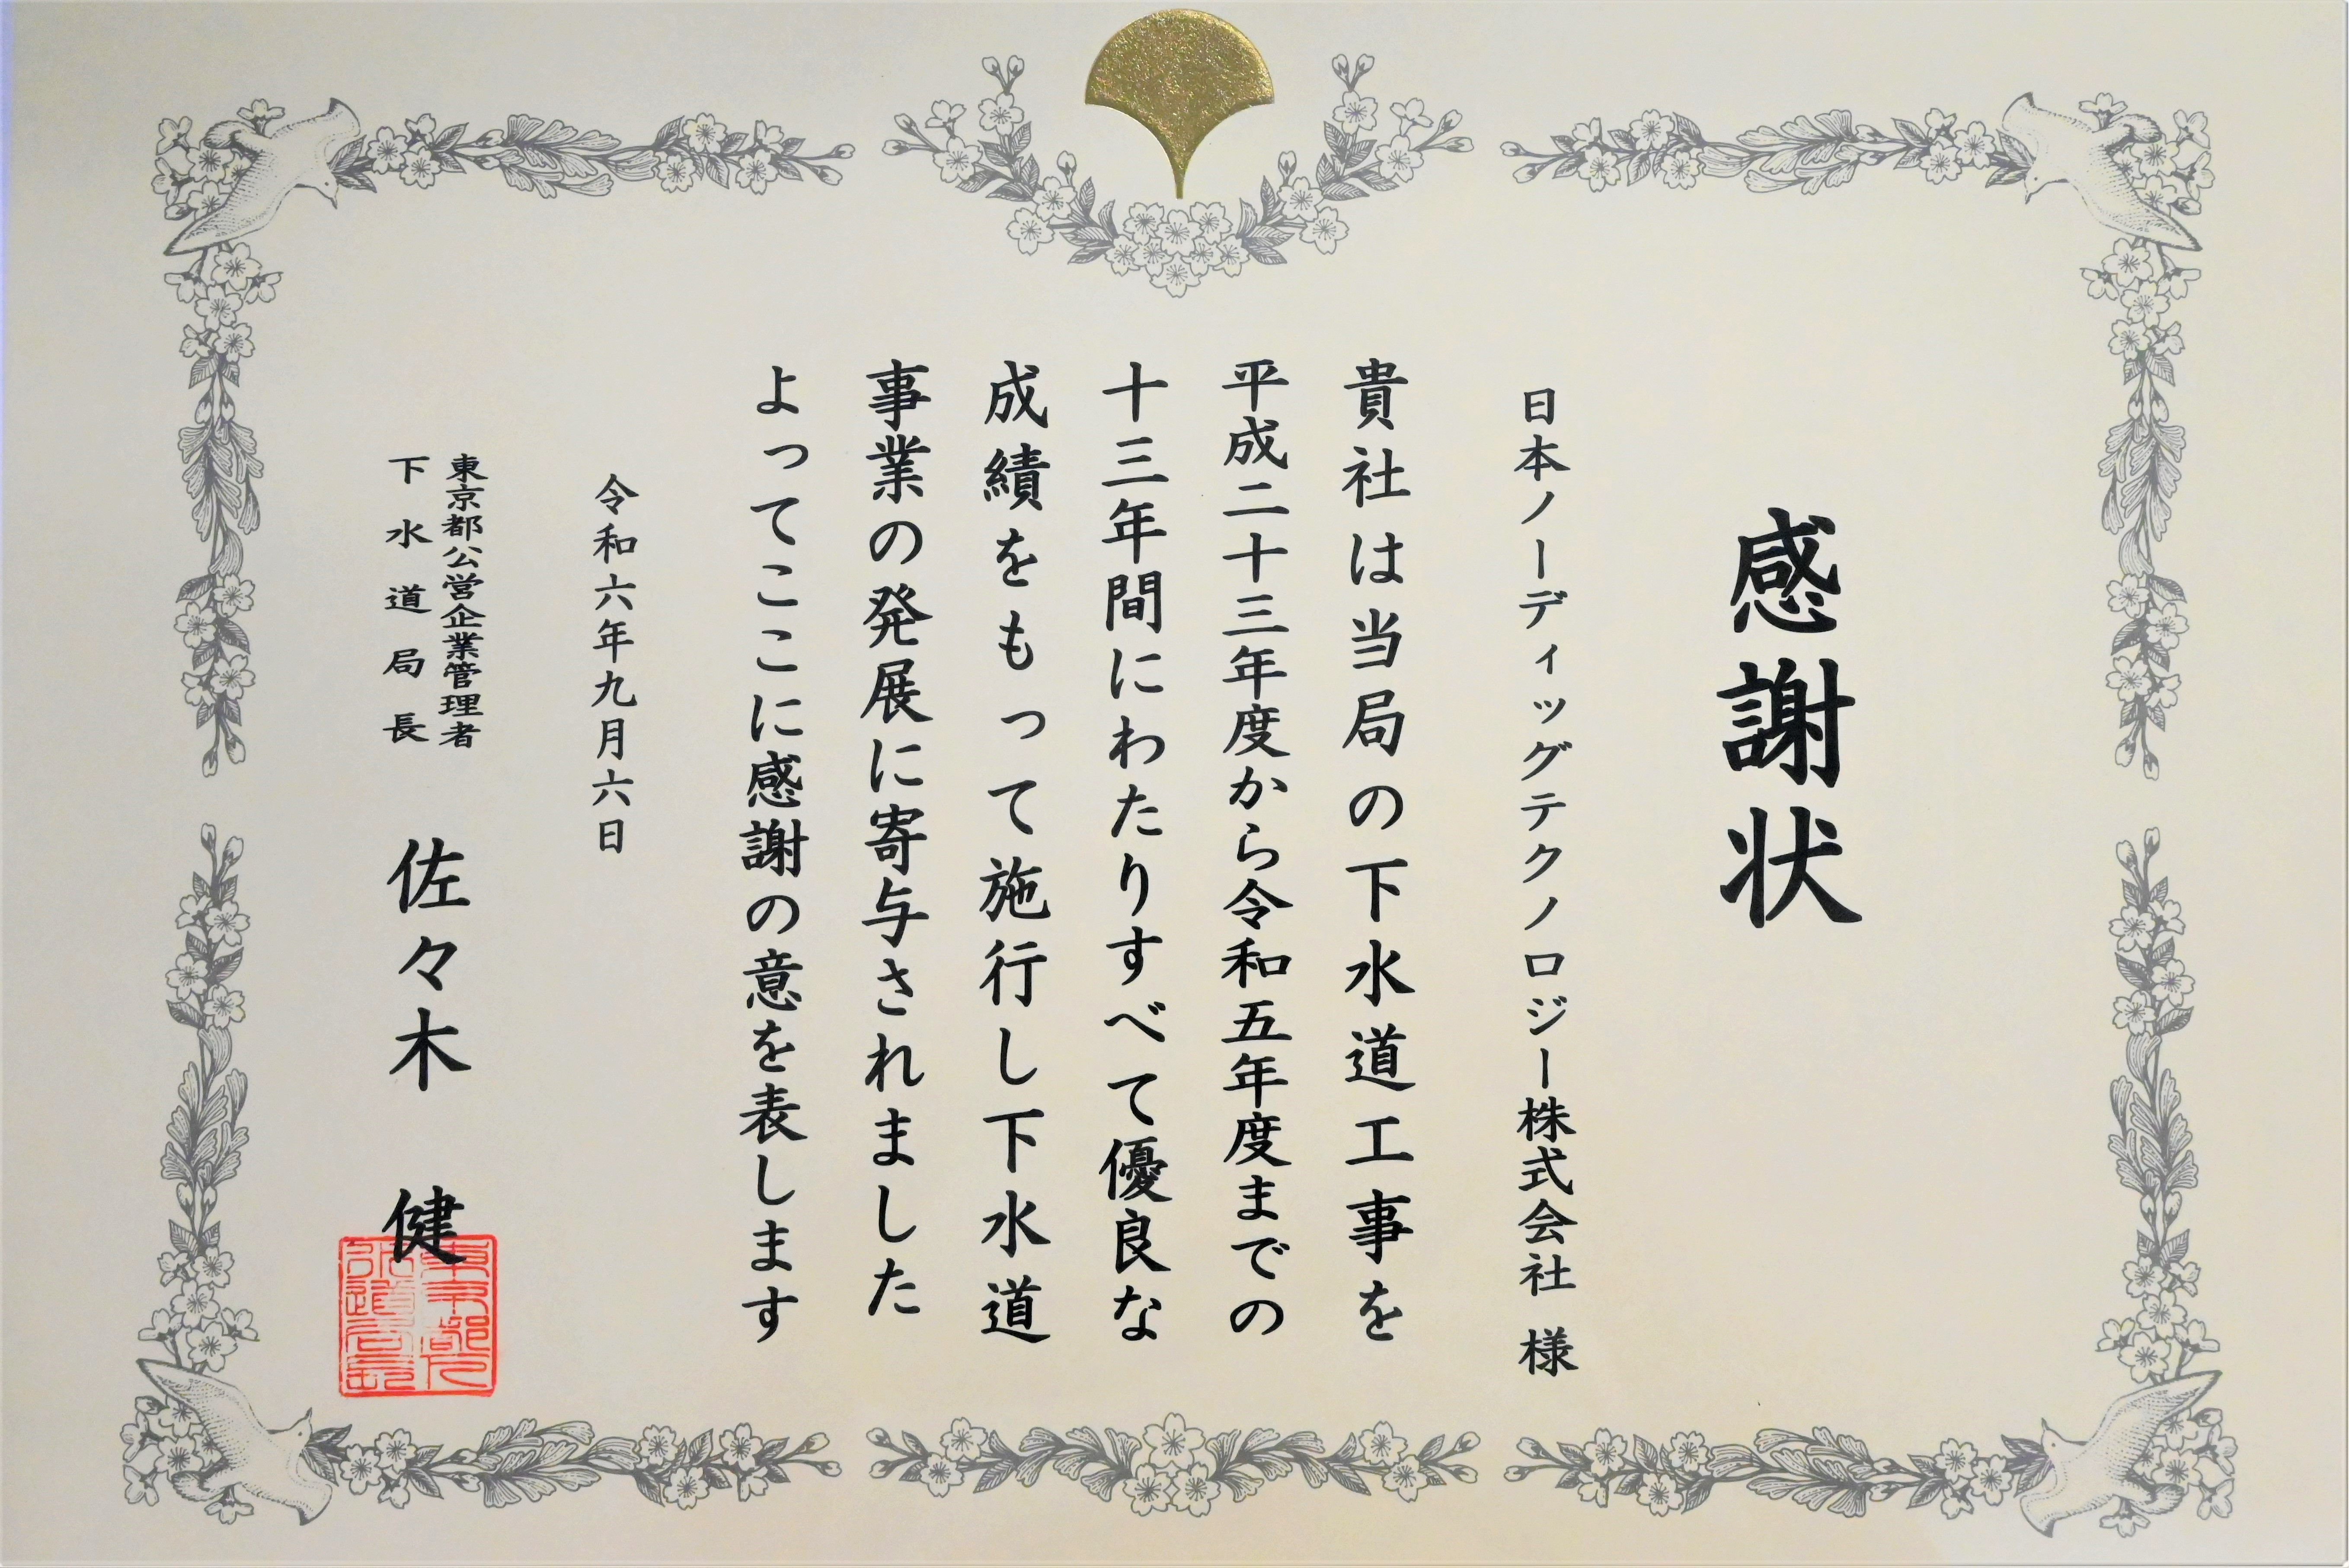 感謝状
日本ノーディッグテクノロジー株式会社 様
貴社は当局の下水道工事を
平成二十三年度から令和五年度までの
十三年間にわたりすべて優良な
成績をもって施行し下水道
事業の発展に寄与されました
よってここに感謝の意を表します
令和六年九月六日
東京都公営企業管理者
下水道局長
佐々木 健